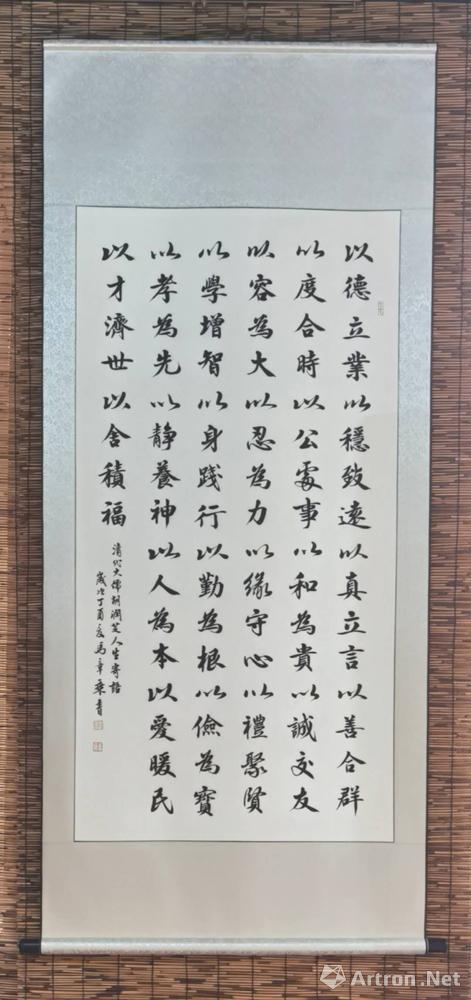 以德立業以穩致遠以真立言以善合群
以度合時以公處事以和為貴以誠交友
以容為大以忍為力以緣守心以禮聚賢
以學增智以身踐行以勤為根以儉為寶
以孝為先以静養神以人為本以愛暖民
以才濟世以舍積福
清代大儒胡潤芝人生寄語
歲次丁酉夏馬章乘書
Artron.Net